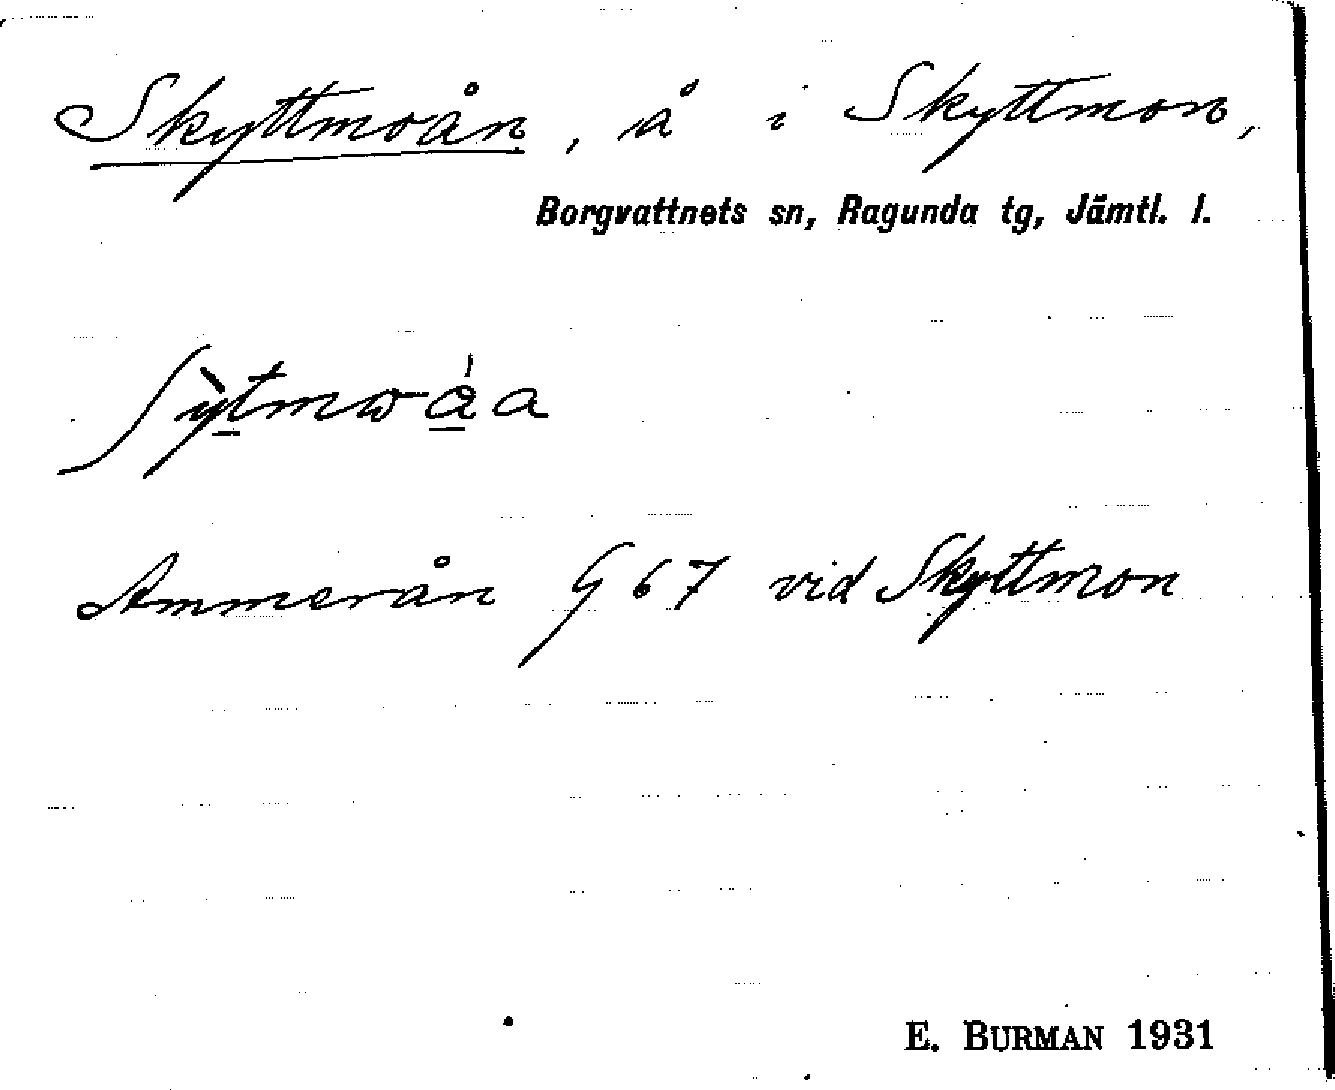 Skyttmoån, å i Skyttmon,
Borgvattnets sn, Ragunda tg, Jämtl. l.
Ammerån G 67 vid Skyttmon
E. BURMAN 1931